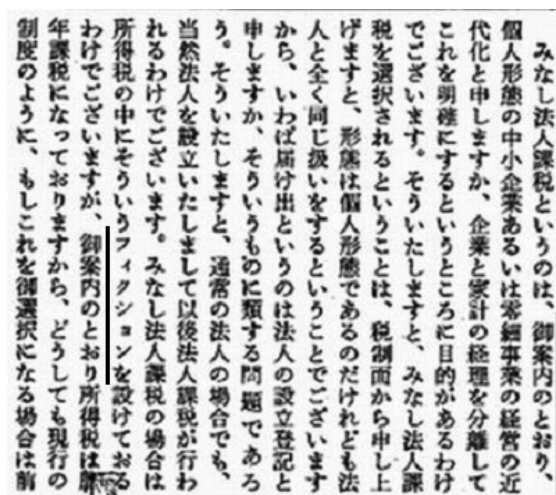 みなし法人課税というのは、御案内のとおり、
個人形態の中小企業あるいは零細事業の経営の近
代化と申しますか、企業と家計の経理を分離して
これを明確にするというところに目的があるわけ
でございます。そういたしますと、みなし法人課
税を選択されるということは、税制面から申し上
げますと、形態は個人形態であるのだけれども法
人と全く同じ扱いをするということでございます
から、いわば届け出というのは法人の設立登記と
申しますか、そういうものに類する問題であろ
う。そういたしますと、通常の法人の場合でも、
当然法人を設立いたしまして以後法人課税が行わ
れるわけでございます。みなし法人課税の場合は
所得税の中にそういうフィクションを設けておる
わけでございますが、御案内のとおり所得税は暦
年課税になっておりますから、どうしても現行の
制度のように、もしこれを御選択になる場合は前